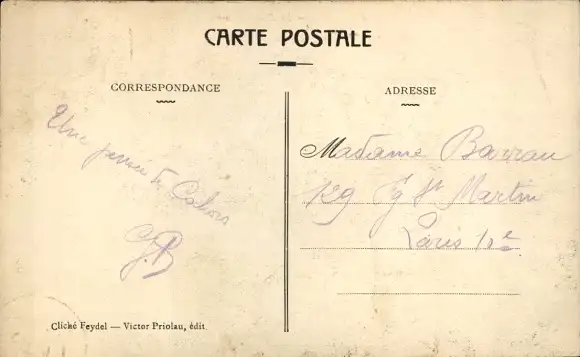 CARTE POSTALE
CORRESPONDANCE
ADRESSE
Une pensée de Cahors
G.B
Madame Barrau
129 Fg St Martin
Paris 10e
Cliché Feydel — Victor Priolau, édit.